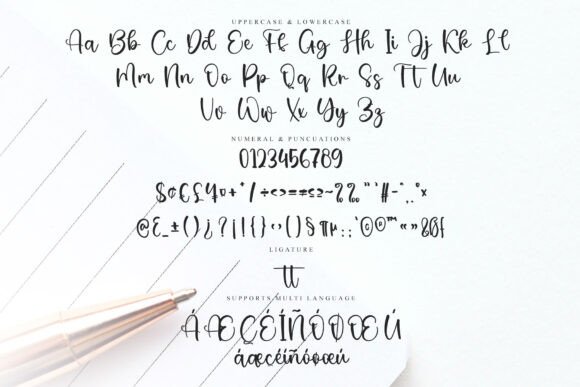 UPPERCASE & LOWERCASE
Aa Bb Cc Dd Ee Ff Gg Hh Ii Jj Kk Ll
Mm Nn Oo Pp Qq Rr Ss Tt Uu
Vv Ww Xx Yy Zz
NUMERAL & PUNCUATIONS
0123456789
LIGATURE
tt
SUPPORTS MULTI LANGUAGE
ÁÆÇÉÍÑÓØŒÚ
áæçéíñóøœú